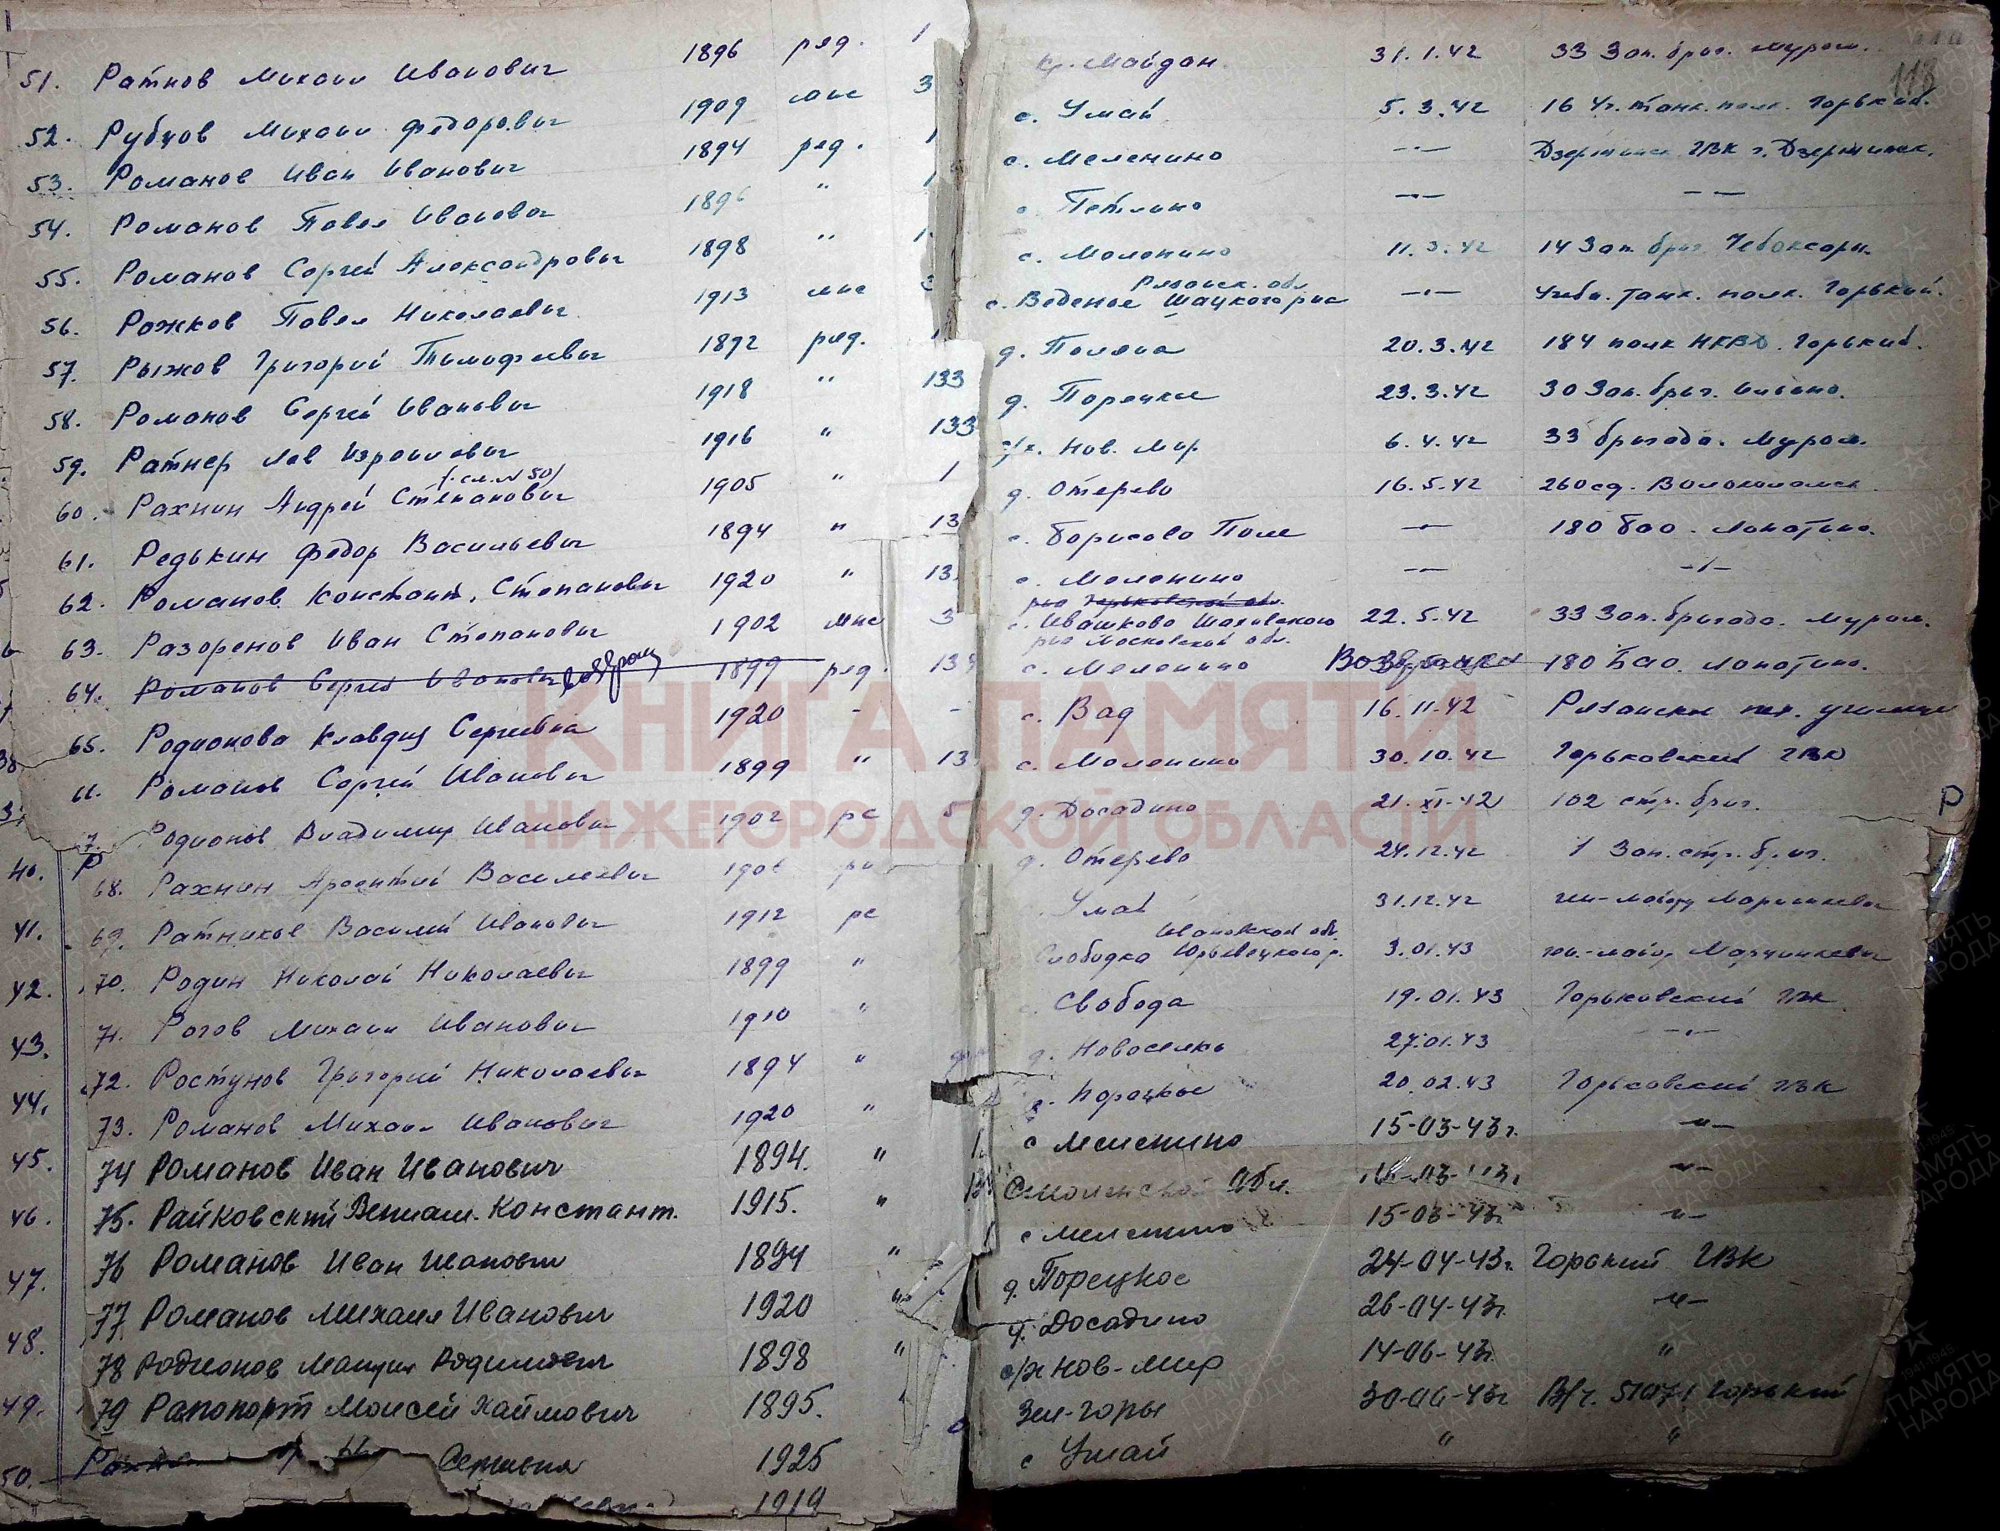 118
51. Ратнов Михаил Иванович 1896 ряд. 1 Кр. Майдан 31.1.42 33 Зап. бриг. Муром.
52. Рубцов Михаил Федорович 1909 млс 3 с. Умай 5.3.42 16 уч. танк. полк. Горький.
53. Романов Иван Иванович 1894 ряд. 1 с. Меленино —"— Дзержинск ГВК г. Дзержинск.
54. Романов Павел Иванович 1896 " 1 с. Петлино —"— — —
55. Романов Сергей Александрович 1898 " 1 с. Меленино 11.3.42 14 Зап. бриг. Чебоксары.
56. Рожков Павел Николаевич 1913 млс 3 с. Веденое Шацкого р-на Рязанск. обл —"— Учебн. танк. полк. Горький.
57. Рыжов Григорий Тимофеевич 1892 ряд. 1 д. Поляна 20.3.42 184 полк НКВД. Горький.
58. Романов Сергей Иванович 1918 " 133 д. Порецкое 23.3.42 30 Зап. бриг.
59. Ратнер Лев Израилович 1916 " 133 с/х. Нов. Мир 6.4.42 33 бригада. Муром.
60. Рахнин Андрей Степанович (см. № 50) 1905 " 1 д. Отерево 16.5.42 260 сд. Волоколамск
61. Редькин Федор Васильевич 1894 " 13 с. Борисово Поле —"— 180 бао. Лопатино.
62. Романов Констант. Степанович 1920 " 13 с. Меленино —"— —"—
63. Разоренов Иван Степанович 1902 млс 3 р-на Горьковской обл. с. Ивашково Шаховского р-на Московской обл. 22.5.42 33 Зап. бригада. Муром.
64. Романов Сергей Иванович возвращ 1899 ряд. 13 с. Меленино Возвращен 180 Бао. Лопатино.
65. Родионова Клавдия Сергеевна 1920 - - с. Вад 16.11.42 Рязанск. пех. училище
66. Романов Сергей Иванович 1899 " 13 с. Меленино 30.10.42 Горьковский ГВК
7. Родионов Владимир Иванович 1902 рс 5 д. Досадино 21.XI.42 102 стр. бриг. Р
68. Рахнин Арсентий Василевич д. Отерево 24.12.42 1 Зап. стр. бриг.
69. Ратников Василий Иванович 1912 рс Умай 31.12.42 ген-майору Марцинкевич
70. Родин Николай Николаевич 1899 " Слободка Юрьевецкого р. Ивановской обл. 3.01.43 ген.-майор Марцинкевич
71. Рогов Михаил Иванович 1910 " с. Свобода 19.01.43 Горьковский ГВК
72. Ростунов Григорий Николаевич 1894 " д. Новоселки 27.01.43 —"—
73. Романов Михаил Иванович 1920 " д. Порецкое 20.02.43 Горьковский ГВК
74 Романов Иван Иванович 1894. " 1 с Меленино 15-03-43г. —"—
75. Райковский Вениам. Констант. 1915. " Смоленской Обл. —"—
76 Романов Иван Иванович 1894 " с Меленино 15-03-43г —"—
77 Романов Михаил Иванович 1920 " д. Порецкое 24-04-43г. Горький ГВК
78 Родионов Родионович 1898 " д. Досадино 26-04-43г. —"—
79 Рапопорт Моисей Хаймович 1895. с/х Нов-Мир 14-06-43г "
Сергеевна 1925 Зел-Горы 30-06-43г В/ч. Горький
1919 с Умай " "
40.
41.
42.
43.
44.
45.
46.
47.
48.
49.
50.
КНИГА ПАМЯТИ
НИЖЕГОРОДСКОЙ ОБЛАСТИ
1941-1945
ПАМЯТЬ
НАРОДА